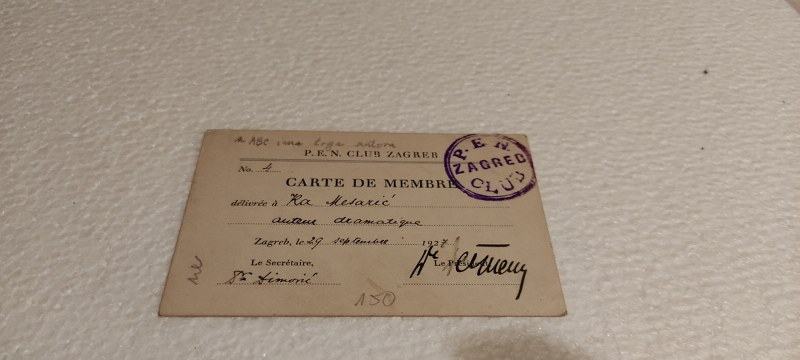 ABC ima toga autora
P.E.N. CLUB ZAGREB
P.E.N.
ZAGREB
CLUB
No. 4
CARTE DE MEMBRE
délivrée à Ka Mesarić
auteur dramatique
Zagreb, le 29 septembre 1927
Le Secrétaire,
Le Président
Dr Simović
150